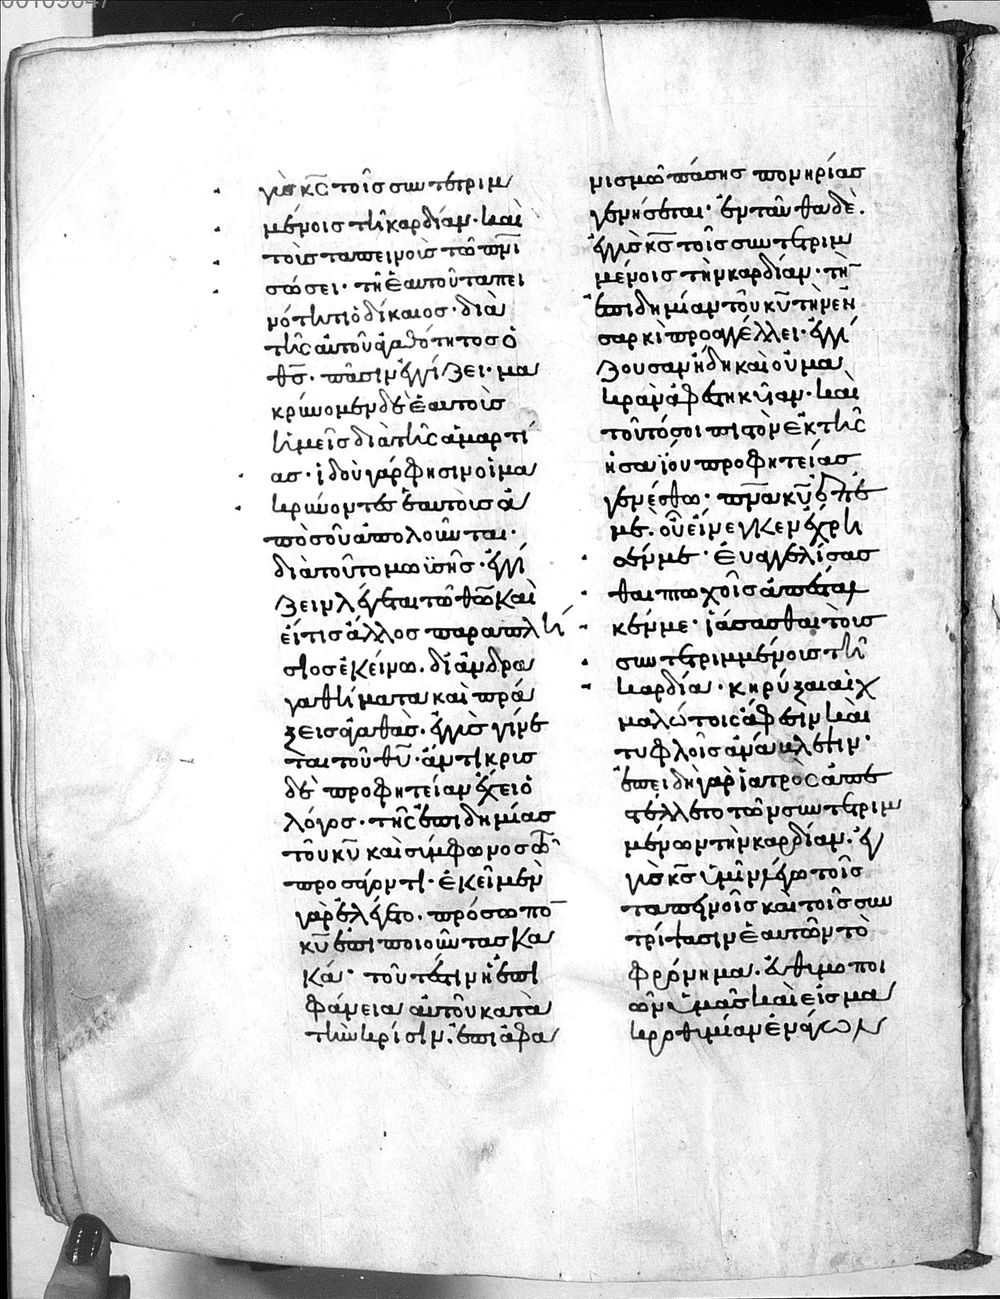 γὺς κς τοῖς συντετριμ
μένοις τὴν καρδίαν· καὶ
τοὺς ταπεινοὺς τῶ πνι
σώσει· τῇ ἑαυτοῦ ταπει
νότητι ὁ δίκαιος· διὰ
τῆς αὐτοῦ ἀγαθότητος ὁ
θς· πᾶσιν ἐγγίζει· μα
κρύνομεν δὲ ἑαυτοὺς
ἡμεῖς διὰ τῆς ἁμαρτί
ας· ἰδοὺ γάρ φησιν οἱ μα
κρύνοντες ἑαυτοὺς ἀ
πὸ σοῦ ἀπολοῦνται·
διὰ τοῦτο μωϋσῆς· ἐγγί
ζειν λέγεται τῶ θῶ καὶ
εἴ τις ἄλλος παραπλή
σιος ἐκείνω. δι' ἀνδρα
γαθήματα καὶ πρά
ξεις ἀγαθὰς. ἐγγὺς γίνε
ται τοῦ θυ· ἀντικρυς
δὲ προφητείαν ἔχει ὁ
λόγος· τῆς ἐπιδημίας
τοῦ κυ καὶ σύμφωνος ὢν
προσάγοντι· ἐκεῖ μὲν
γὰρ ἐλέγετο. πρόσωπον
κυ ἐπὶ ποιοῦντας κα
κά· τουτέστιν ἡ ἐπι
φάνεια αὐτοῦ κατὰ
τὴν κρίσιν. ἐπὶ ἀφα
νισμῶ πάσης πονηρίας
γενήσεται· ἐνταῦθα δὲ.
ἐγγὺς κς τοῖς συντετριμ
μένοις τὴν καρδίαν· τὴν
ἐπιδημίαν τοῦ κυ τὴν ἐν
σαρκὶ προαγγέλλει· ἐγγί
ζουσαν ἤδη καὶ οὐ μα
κρὰν ἀφεστηκυῖαν· καὶ
τοῦτό σοι πιστὸν ἐκ τῆς
ἡσαΐου προφητείας
γενέσθω· πνα κυ ἐπ' ἐ
μὲ. οὗ εἵνεκεν ἔχρι
σέν με· εὐαγγελίσασ
θαι πτωχοῖς ἀπέσταλ
κέν με· ἰάσασθαι τοὺς
συντετριμμένους τῆ
καρδία· κηρύξαι αἰχ
μαλώτοις ἄφεσιν καὶ
τυφλοῖς ἀνάβλεψιν·
ἐπειδὴ γὰρ ἰατρὸς ἀπε
στέλλετο τῶν συντετριμ
μένων τὴν καρδίαν. ἐγ
γὺς κς ὑμῖν λέγω τοῖς
ταπεινοῖς καὶ τοῖς συν
τρίψασιν ἑαυτῶν τὸ
φρόνημα. εὐθυμοποι
ῶν ὑμᾶς καὶ εἰς μα
κροθυμίαν ἐνάγων